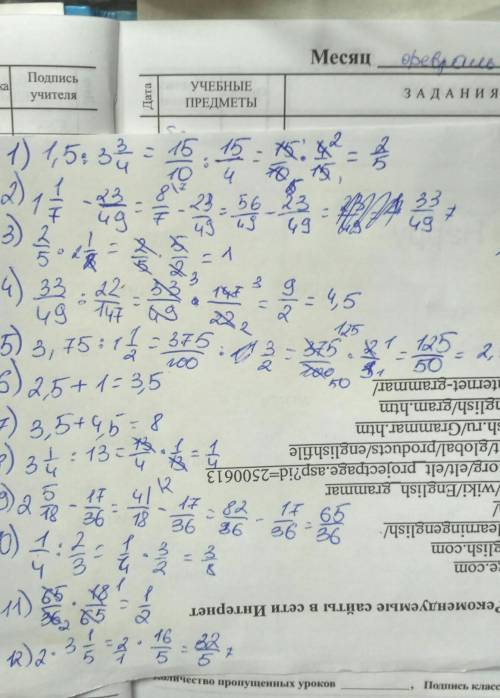 Месяц февраль
Подпись учителя
Дата
УЧЕБНЫЕ ПРЕДМЕТЫ
ЗАДАНИЯ
1) 1,5 : 3 3/4 = 15/10 : 15/4 = 15/10 · 4/15 = 2/5
2) 1 1/7 - 23/49 = 8/7 - 23/49 = 56/49 - 23/49 = 33/49
3) 2/5 · 2 1/2 = 2/5 · 5/2 = 1
4) 33/49 : 22/147 = 33/49 · 147/22 = 9/2 = 4,5
5) 3,75 : 1 1/2 = 375/100 : 3/2 = 375/100 · 2/3 = 125/50 = 2,
6) 2,5 + 1 = 3,5
7) 3,5 + 4,5 = 8
8) 3 1/4 : 13 = 13/4 · 1/13 = 1/4
9) 2 5/18 - 17/36 = 41/18 - 17/36 = 82/36 - 17/36 = 65/36
10) 1/4 : 2/3 = 1/4 · 3/2 = 3/8
11) 65/36 · 18/65 = 1/2
12) 2 · 3 1/5 = 2/1 · 16/5 = 32/5
Рекомендуемые сайты в сети Интернет
ge.com
glish.com
learningenglish/
/
/wiki/English_grammar
org/elt/e_projectpage.asp?id=2500613
t/global/products/englishfile
sh.ru/Grammar.htm
nglish/gram.htm
nternet-grammar/
Количество пропущенных уроков
, Подпись класс